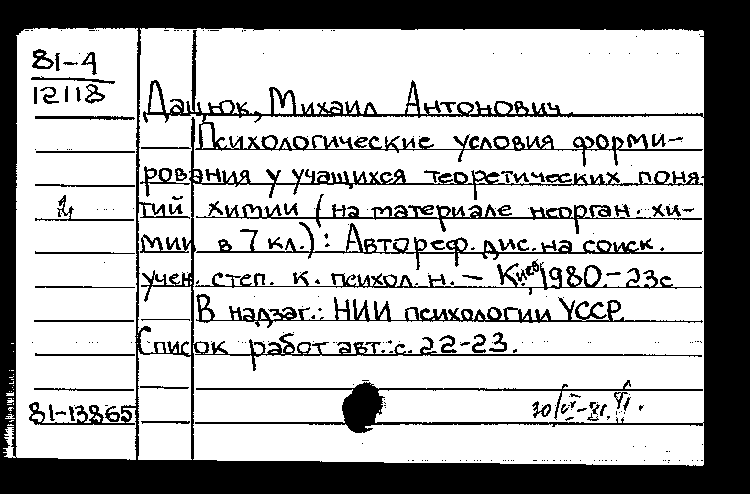 81-4
12118
Дацюк, Михаил Антонович.
Психологические условия форми-
рования у учащихся теоретических поня-
тий химии (на материале неорган. хи-
мии в 7 кл.): Автореф. дис. на соиск.
учен. степ. к. психол. н. – Киев, 1980.- 23с
В надзаг.: НИИ психологии УССР.
Список работ авт.: с. 22-23.
81-13865